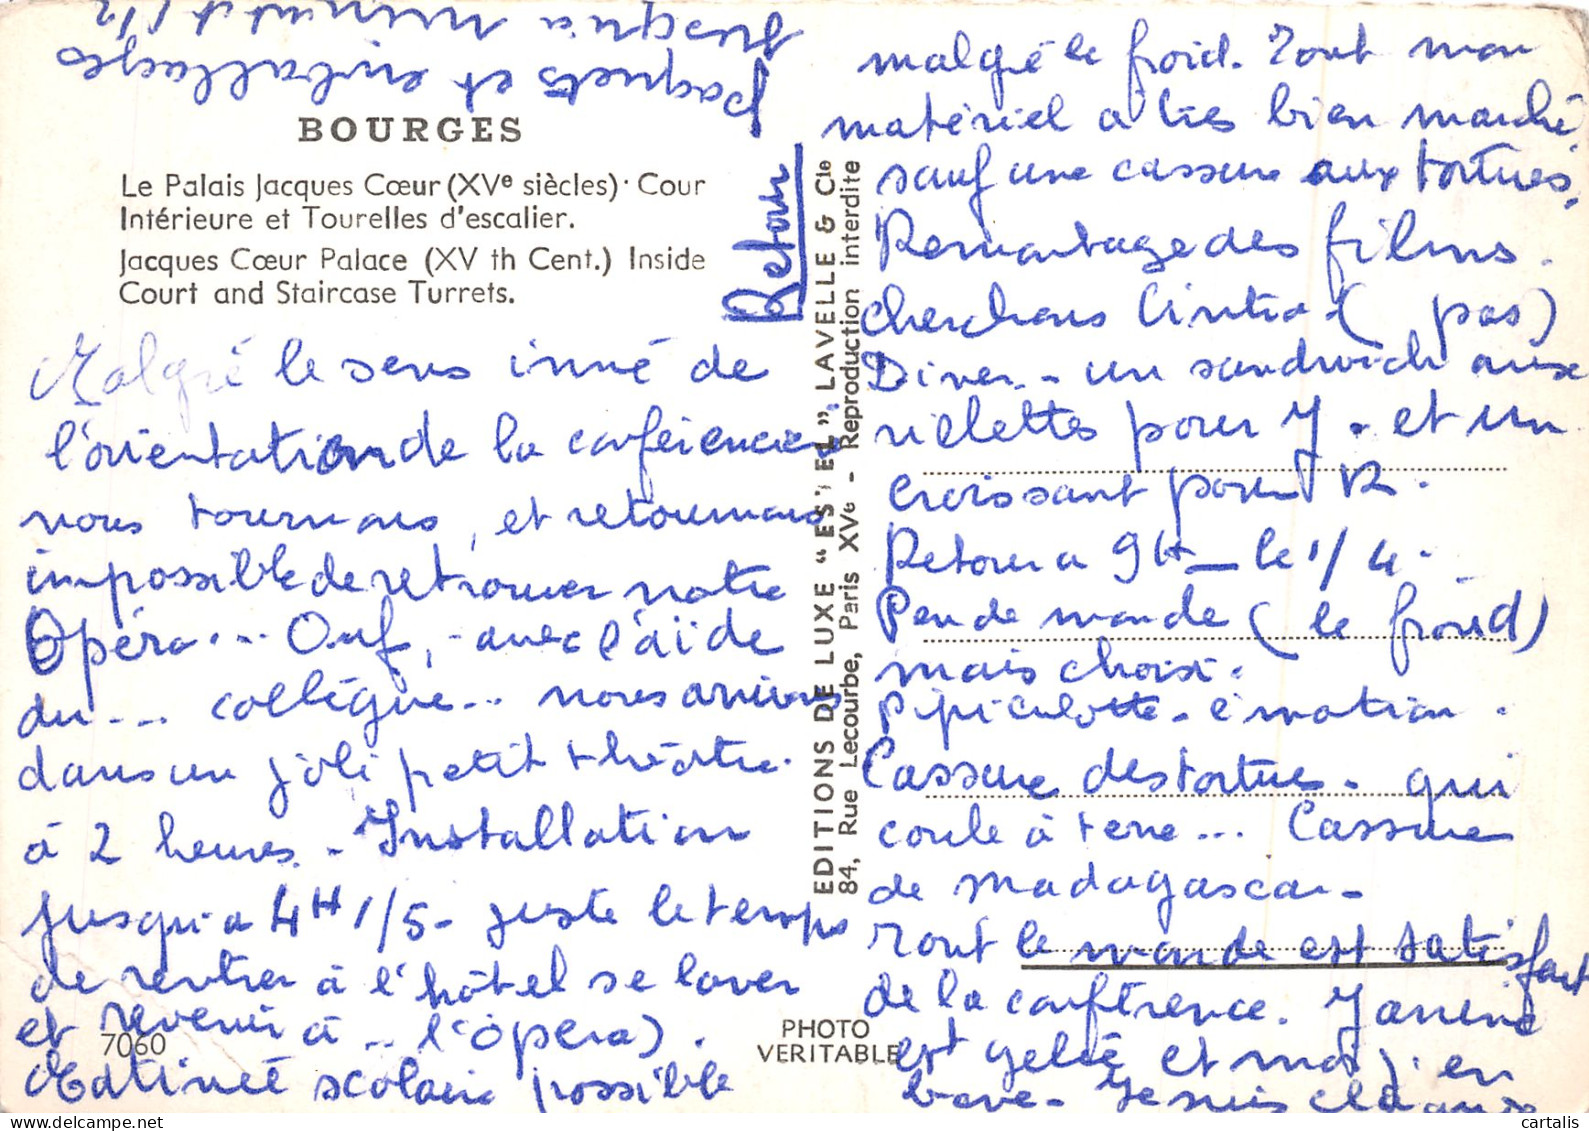 BOURGES
Le Palais Jacques Cœur (XVe siècles) · Cour
Intérieure et Tourelles d'escalier.
Jacques Cœur Palace (XV th Cent.) Inside
Court and Staircase Turrets.
Malgré le sens inné de
l'orientation de la conférencière
nous tournons, et retournons
impossible de retrouver notre
Opéra... Ouf, - avec l'aïde
du... collègue... nous arrivons
dans un joli petit théâtre.
à 2 heures. - Installation
jusqu'a 4H 1/5 - juste le temps
de rentrer à l'hôtel se laver
et revenir à .. l'opera).
Matineé scolaire possible
malgré le froid. Tout mon
matériel a tres bien marché
sauf une cassure aux tortues.
Remontage des films.
cherchons (pas)
Diner - un sandwich aux
rillettes pour J. et un
croissant pour R.
Retour a 9H - le 1/4.
Peu de monde (le froid)
mais choisi.
Pipi culotte - émotion.
Cassure des tortues. qui
coule à terre... Cassure
de Madagascar -
Tout le monde est satisfait
de la conférence. Janine
est gelée et moi j'en
bave. Je suis claquée
paquets et emballages
jusqu'a minuit 1/2
Retour
EDITIONS DE LUXE "ESTEL" LAVELLE & Cie
84, Rue Lecourbe, Paris XVe - Reproduction interdite
7060
PHOTO
VERITABLE
cartalis.com